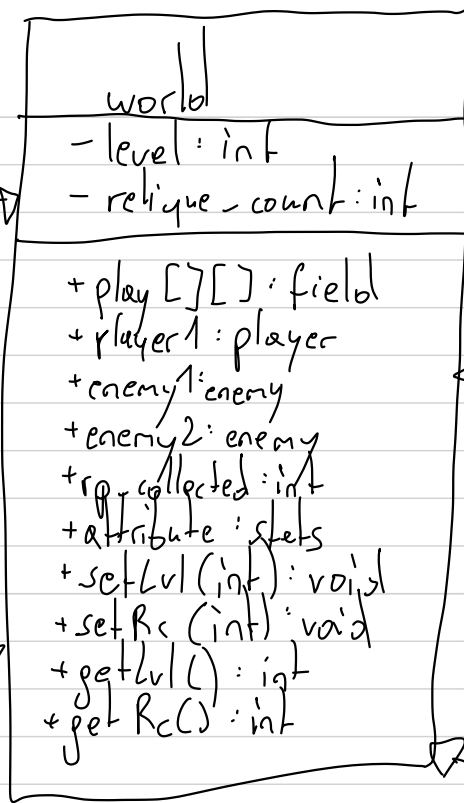 world
- level : int
- relique_count : int
+ play [][] : field
+ player1 : player
+ enemy1 : enemy
+ enemy2 : enemy
+ collected : int
+ attribute : stats
+ setLvl (int) : void
+ setRc (int) : void
+ getLvl () : int
+ get Rc () : int